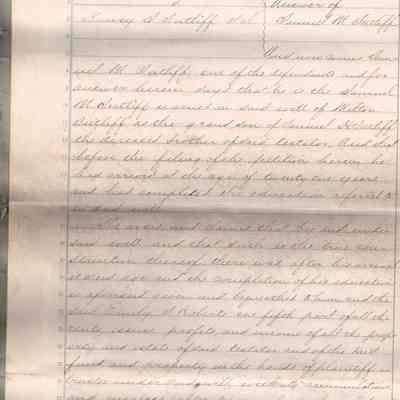 Answer of
Samuel M. Sutliff
And now comes Sam-
uel M. Sutliff, one of the defendants and for
answer herein says that he is the Samuel
M. Sutliff named in said will of Milton
Sutliff as the grand son of Samuel Sutliff
the deceased brother of said testator. And that
before the filing of the petition herein he
had arrived at the age of twenty one years
and had completed the education referred to
in said will.
He avers and claims that by and under
said will, and that such is the true con-
struction thereof, there was after his arrival
at said age and the completion of his education
as aforesaid given and bequeathed to him and the
said Emily one fifth part of all the
rents, issues, profits, and income of all the prop-
erty and estate of said testator and of the trust
fund and property in the hands of plaintiff as
trustee under